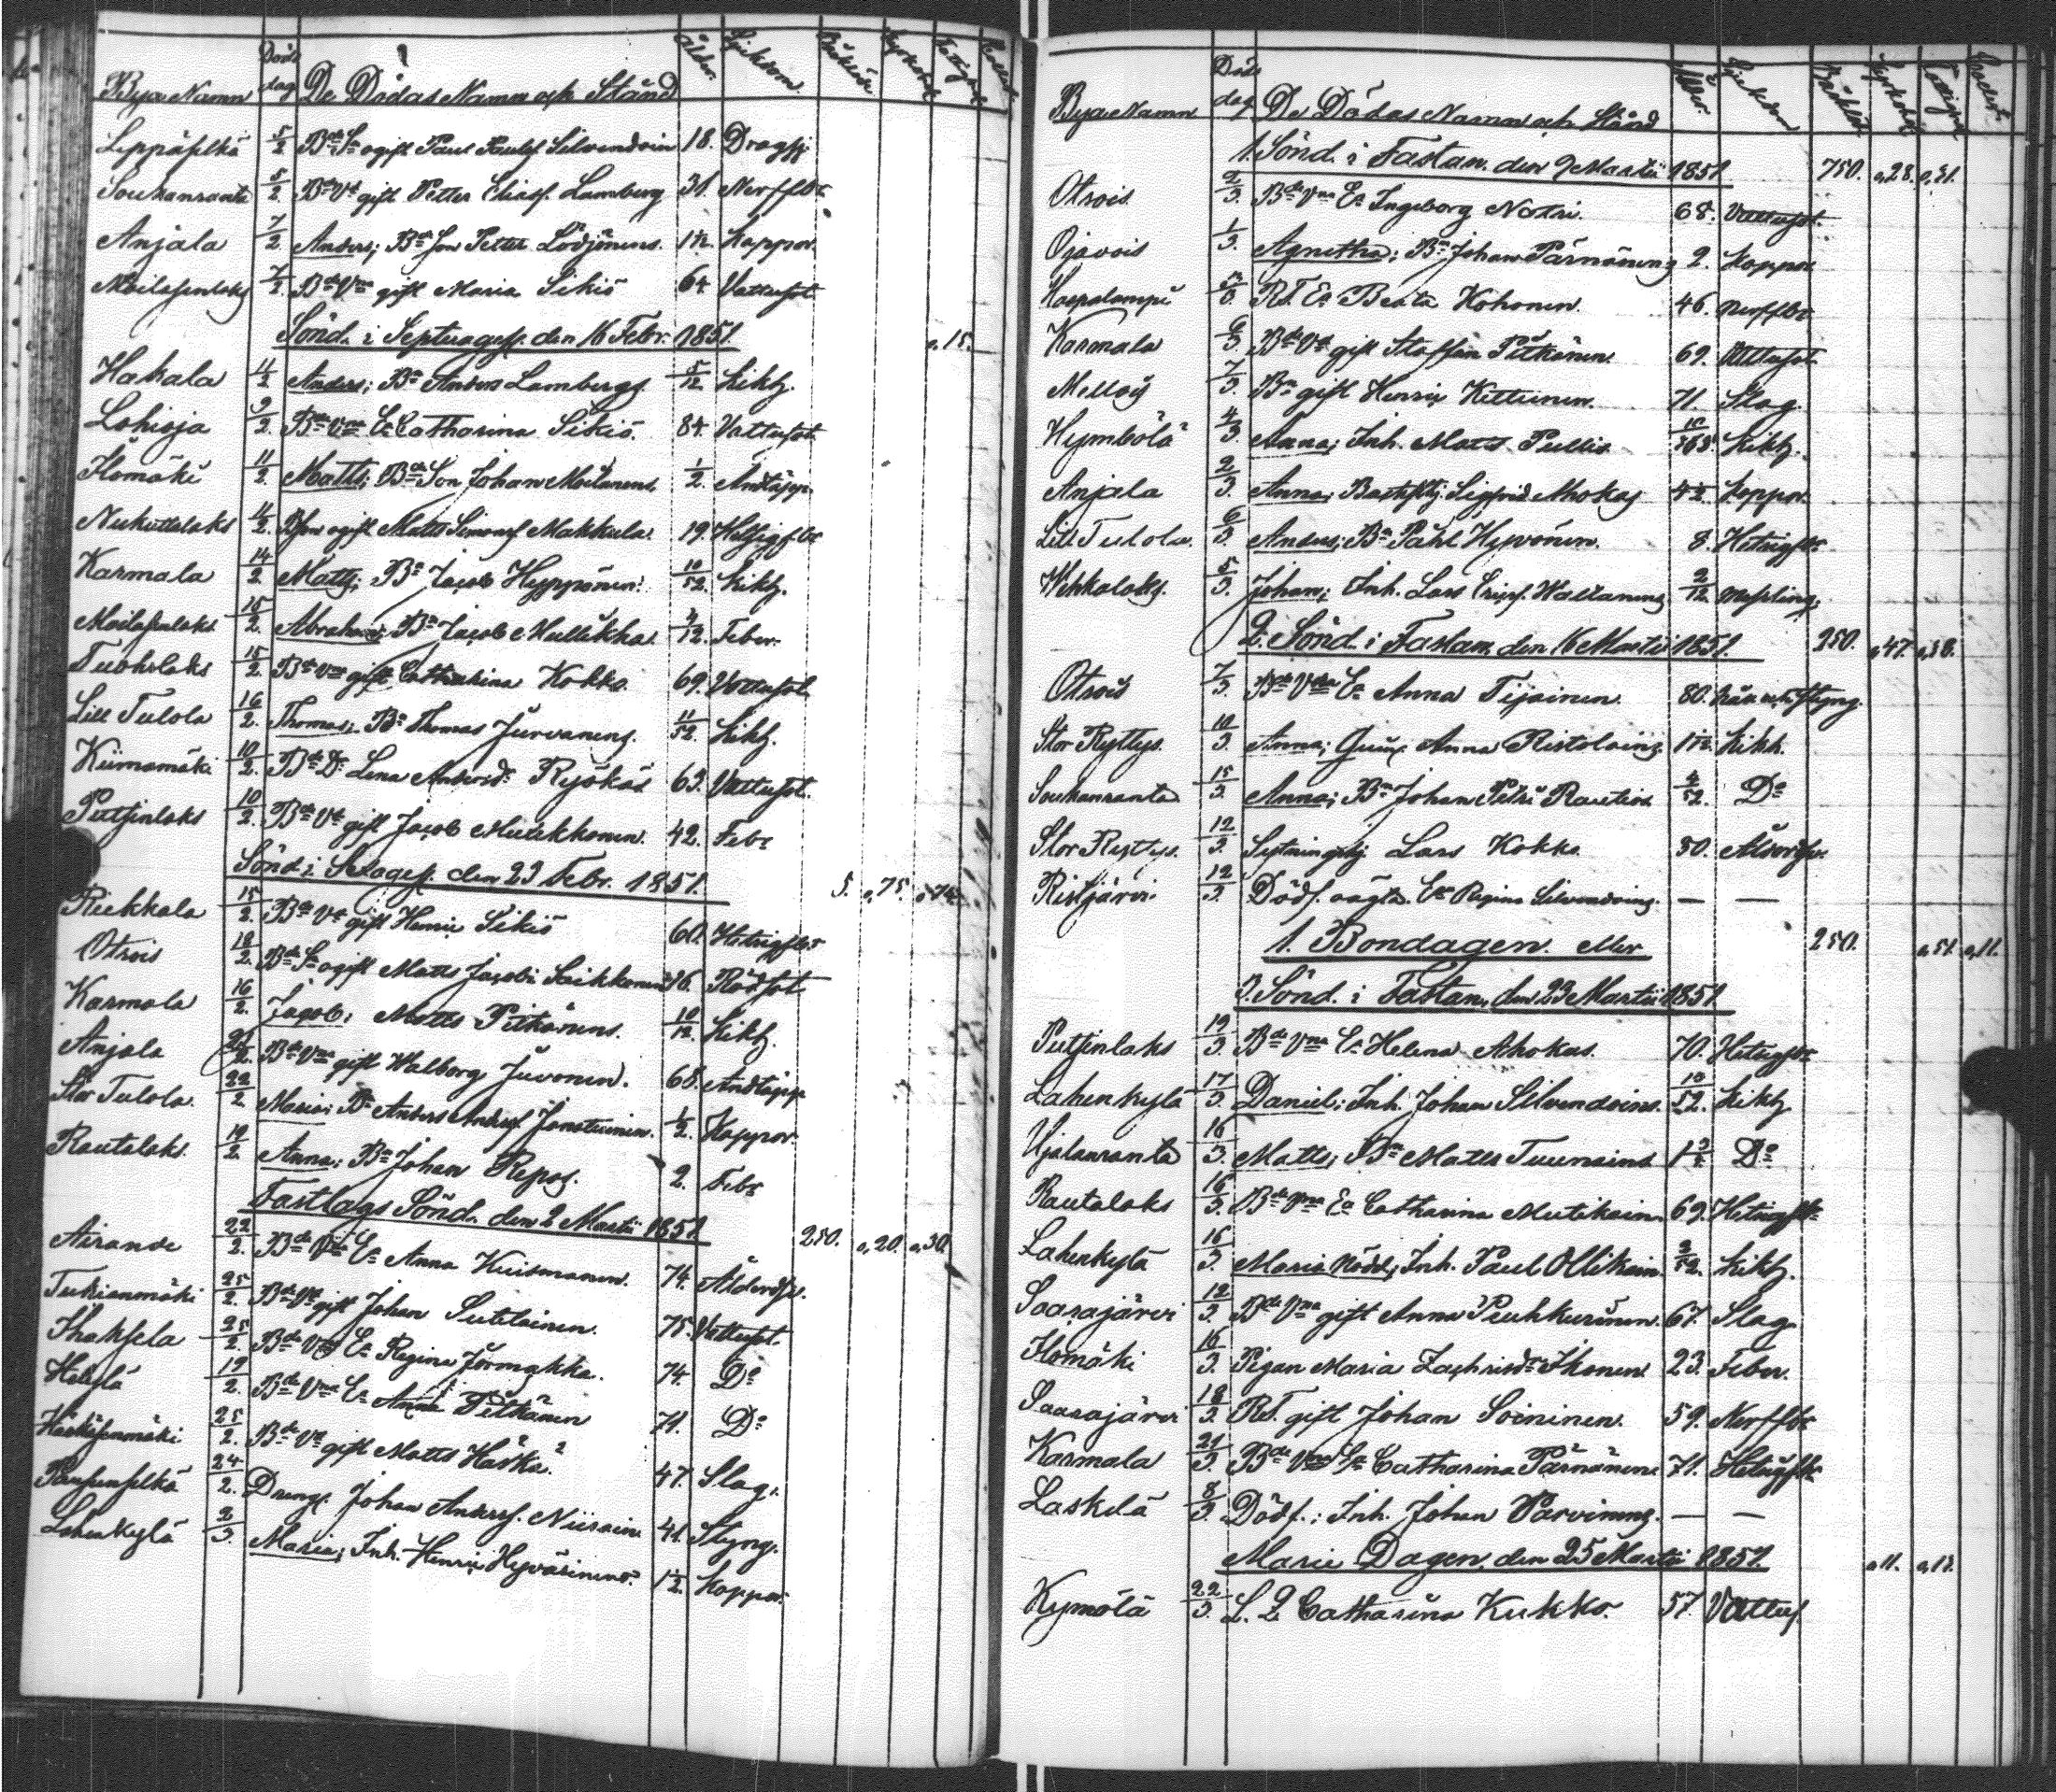 Bya Namn Döds dag De Dödas Namn och Stånd Ålder. Sjukdom.
Leppäselkä 5/2 Bde Sn ogift Paul Paulss. Silvendoin 18. Dragsj.
Soukanranta 5/2 Bde Vd gift Petter Eliass. Lamberg 31. Nerffbr.
Anjala 7/2 Anders; Bde Son Petter Lödjönens. 1 1/2. Koppor.
Moilasenlaks 7/2 Bde Vna gift Maria Sikiö 64. Vattusot.
Sönd. i Septuagess. den 16 Febr. 1851. 15.
Hakala 11/2 Anders; Bn Anders Lambergs. 5/12 Kikh.
Lohioja 9/2 Bde Vna Ea Catharina Sikiö. 84. Vattusot.
Ilomäki 11/2 Matts; Bde Son Johan Moilanens. 1/2. Andtäpp.
Nukuttalaks 11/2 Bson ogift Matts Simonss. Makkula. 19. Hetsigfbr
Karmala 14/2 Matts; Bn Jacob Hyppönen. 10/52. Kikh.
Moilasenlaks 15/2 Abraham; Bn Jacob Mullikka. Feber.
Tuohilaks 15/2 Bde Vna gift Catharina Kokko. 69. Vattusot
Lill Tulola 16/2 Thomas; Bn Thomas Jurvanens. 11/52. Kikh.
Kiimamäki 10/2 Bde Dr Lena Andersdr Ryökäs 63. Vattusot.
Putsinlaks 10/2 Bde Vd gift Jacob Mutikkonen. 42. Febr
Sönd. i Sexagess. den 23 Febr. 1851. 5. 75.
Riekkala 15/2 Bde Vd gift Henric Sikiö 60. Hetsigfbr
Otrois 18/2 Bde Sn ogift Matts Jacobs Saikkonen 16. Rödsot
Karmala 16/2 Jacob; Matts Pitkänens. 10/12 Kikh.
Anjala Bde Vna gift Walborg Juvonen. 68. Andtäpp
Stor Tulola. 22/2 Maria; Bn Anders Anderss. Jonotuinen. 1/2. Koppor.
Rautalaks. 19/2 Anna; Bn Johan Repos. 2. Febr
Fastlags Sönd. den 2 Martii 1851. 250. 20. 30.
Airanne 22/2. Bde Vna Ea Anna Kuismanen. 74. Ålderdfr.
Tukianmäki 25/2. Bde Vd gift Johan Sutelainen. 75. Vattusot.
Ihaksela 25/2. Bde Vna Ea Regina Jörmakka. 74. Do
Helylä 19/2. Bde Vna Ea Anna Pitkänen 71. Do
Härkäsenmäki 25/2. Bde Vd gift Matts Härkä. 47. Slag.
24/2. Dreng. Johan Anderss. Niirain 41. Styng.
Lahenkylä 2/3. Maria; Inh. Henric Hyvärinens. 1 1/2. Koppor.
Bya Namn Döds dag De Dödas Namn och Stånd Ålder. Sjukdom
1. Sönd. i Fastan. den 9 Martii 1851. 750. 28. 31.
Otrois 2/3. Bde Vna Ea Ingeborg Notri. 68. Vattusot.
Ojavois 1/3. Agnetha; Bn Johan Pärnänens 2. Koppor
Haapalampi 5/3. RT. Ea Beata Kohonen. 46. Nerffbr.
Karmala 6/3. Bde Vd gift Staffan Pitkänen. 69. Vattusot
Melloi 7/3. Bn gift Henric Kettunen. 71. Slag.
Hymbölä 4/3. Anna; Inh. Matts Pullis Kikh.
Anjala 2/3. Anna; Sigfrid Ahokas Koppor.
Lill Tulola. 6/3. Anders; Bn Påhl Hyvönen. 8. Hetsigfbr
Wehkalaks. 5/3. Johan; Inh. Lars Ericss. Waltanens 2/12. Messling.
2. Sönd. i Fastan, den 16 Martii 1851. 250. 47. 38.
Otrois 7/3. Bde Vna Ea Anna Tijainen. 80. Håll och Styng.
Stor Ryttys. 10/3. Anna; Quinp. Anna Ristolains. Kikh.
Soukanranta 15/3. Anna; Bn Johan Petri Rautios 4/52. Do
Stor Ryttys. 12/3. Lars Kokko. 80. Ålderdfr.
Ristjärvi. 12/3. Dödf. oägta. Ea Regina Silvendoins. — —
1. Bondagen. 250. 51. 11.
3. Sönd. i Fastan, den 23 Martii 1851.
Putsinlaks 19/3. Bde Vna Ea Helena Ahokas. 70. Hetsigfbr
Lahenkylä 17/3. Daniel; Inh. Johan Silvendoins. 13/52. Kikh.
Ujalanranta 16/3. Matts; Bn Matts Tuunains Do
Rautalaks 16/3. Bde Vna Ea Catharina Mutikain. 69. Hetsigfbr
Lahenkylä 16/3. Maria Nödd; Inh. Paul Ollikain. 3/52. Kikh.
Saarajärvi 12/3. Bde Vna gift Anna Puhkurinen. 67. Slag
Ilomäki 16/3. Pigan Maria Zachrisdr Ikonen. 23. Feber.
Saarajärvi 18/3. RT. gift Johan Soininen. 59. Nerffbr
Karmala 21/3. Bde Vna Ea Catharina Pärnänen 71. Hetsigfbr
Laskelä 8/3. Dödf.; Inh. Johan Parvinens. — —
Marie Dagen, den 25 Martii 1851. 11. 12.
Kymölä 22/3. Catharina Kukko. 57. Vattus.